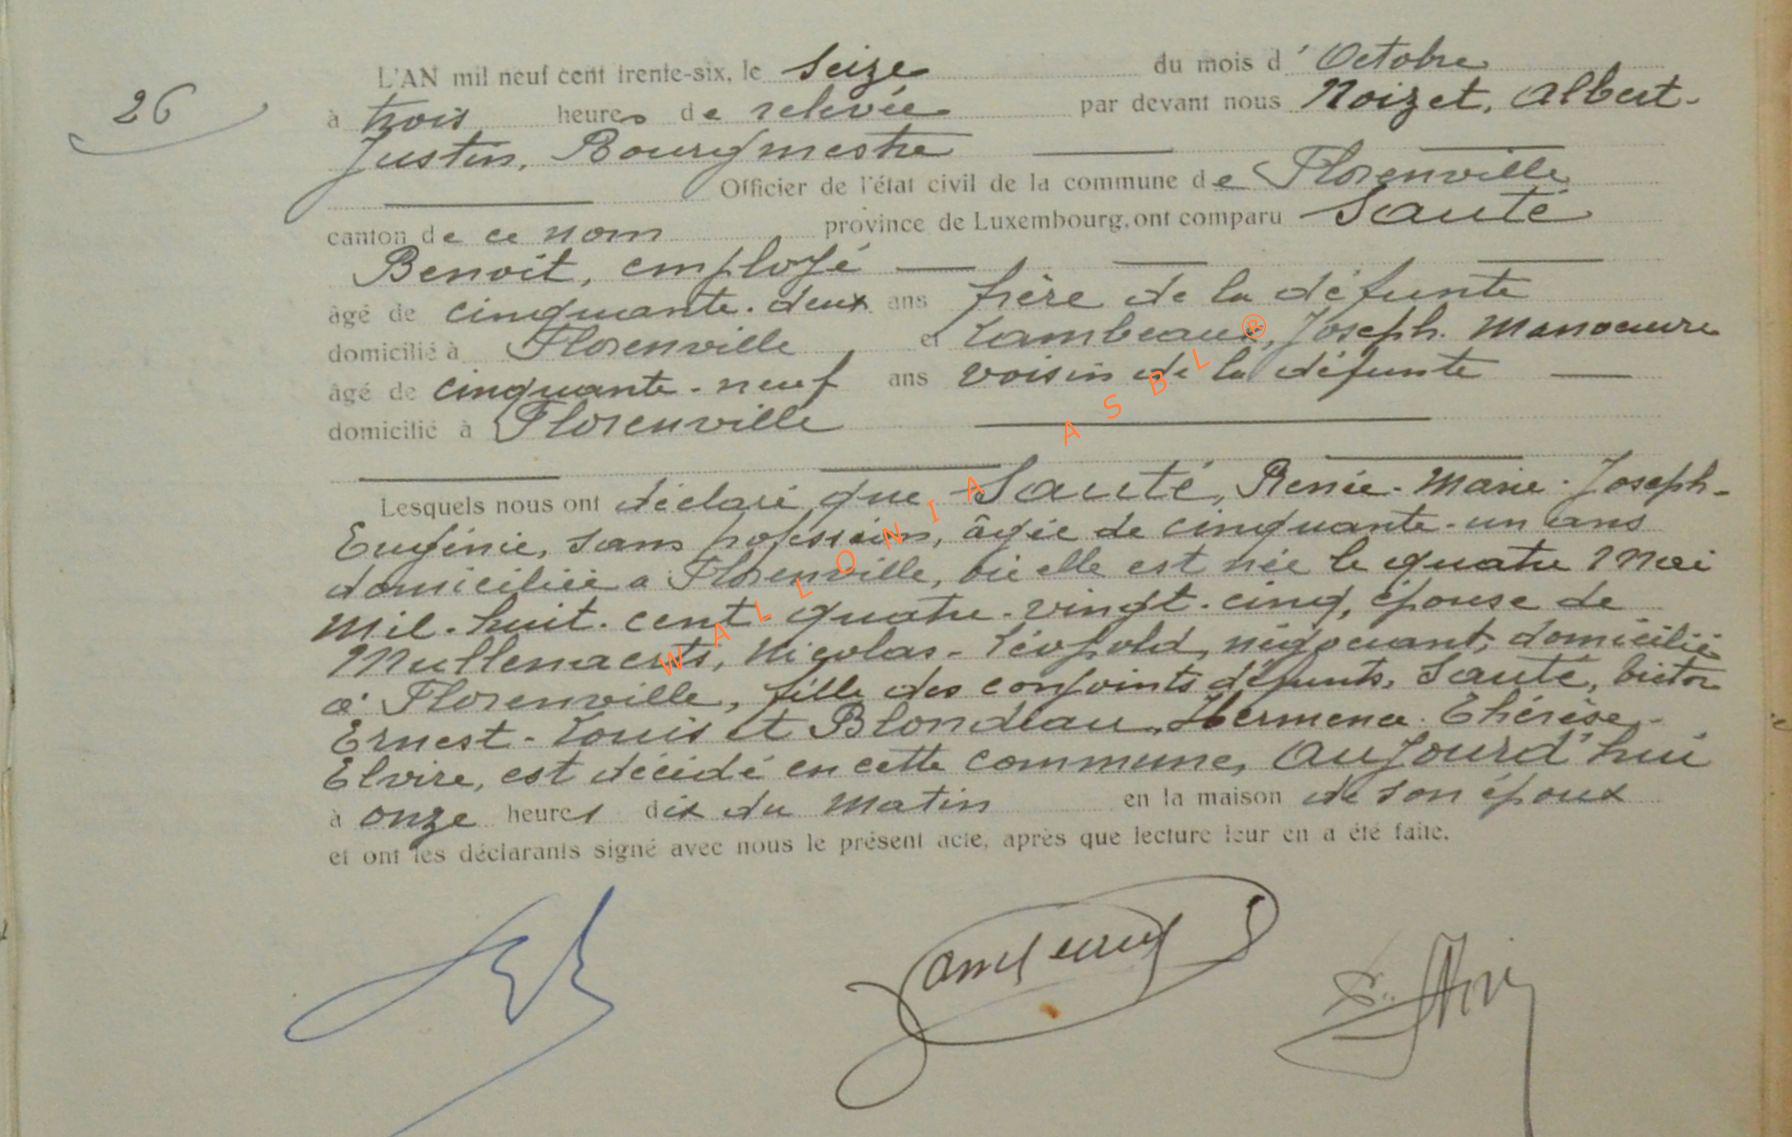 26
L'AN mil neuf cent trente-six, le seize du mois d'Octobre
à trois heures de relevée par devant nous Noizet, Albert-
Justin, Bourgmestre
Officier de l'état civil de la commune de Florenville
canton de ce nom province de Luxembourg, ont comparu Sauté
Benoît, employé
âgé de cinquante-deux ans frère de la défunte
domicilié à Florenville et Lambeaux, Joseph. Manoeuvre
âgé de cinquante-neuf ans voisin de la défunte
domicilié à Florenville
Lesquels nous ont déclaré que Sauté, Renée-Marie-Joseph-
Eugénie, sans profession, âgée de cinquante-un ans
domiciliée à Florenville, où elle est née le quatre Mai
mil-huit-cent quatre-vingt-cinq, épouse de
Mullenaerts, Nicolas-Léopold, négociant, domicilié
à Florenville, fille des conjoints défunts, Sauté, Victor
Ernest-Louis et Blondeau, Hermence-Thérèse-
Elvire, est décédé en cette commune, aujourd'hui
à onze heures dix du matin en la maison de son époux
et ont les déclarants signé avec nous le présent acte, après que lecture leur en a été faite.
WALLONIA ASBL ®